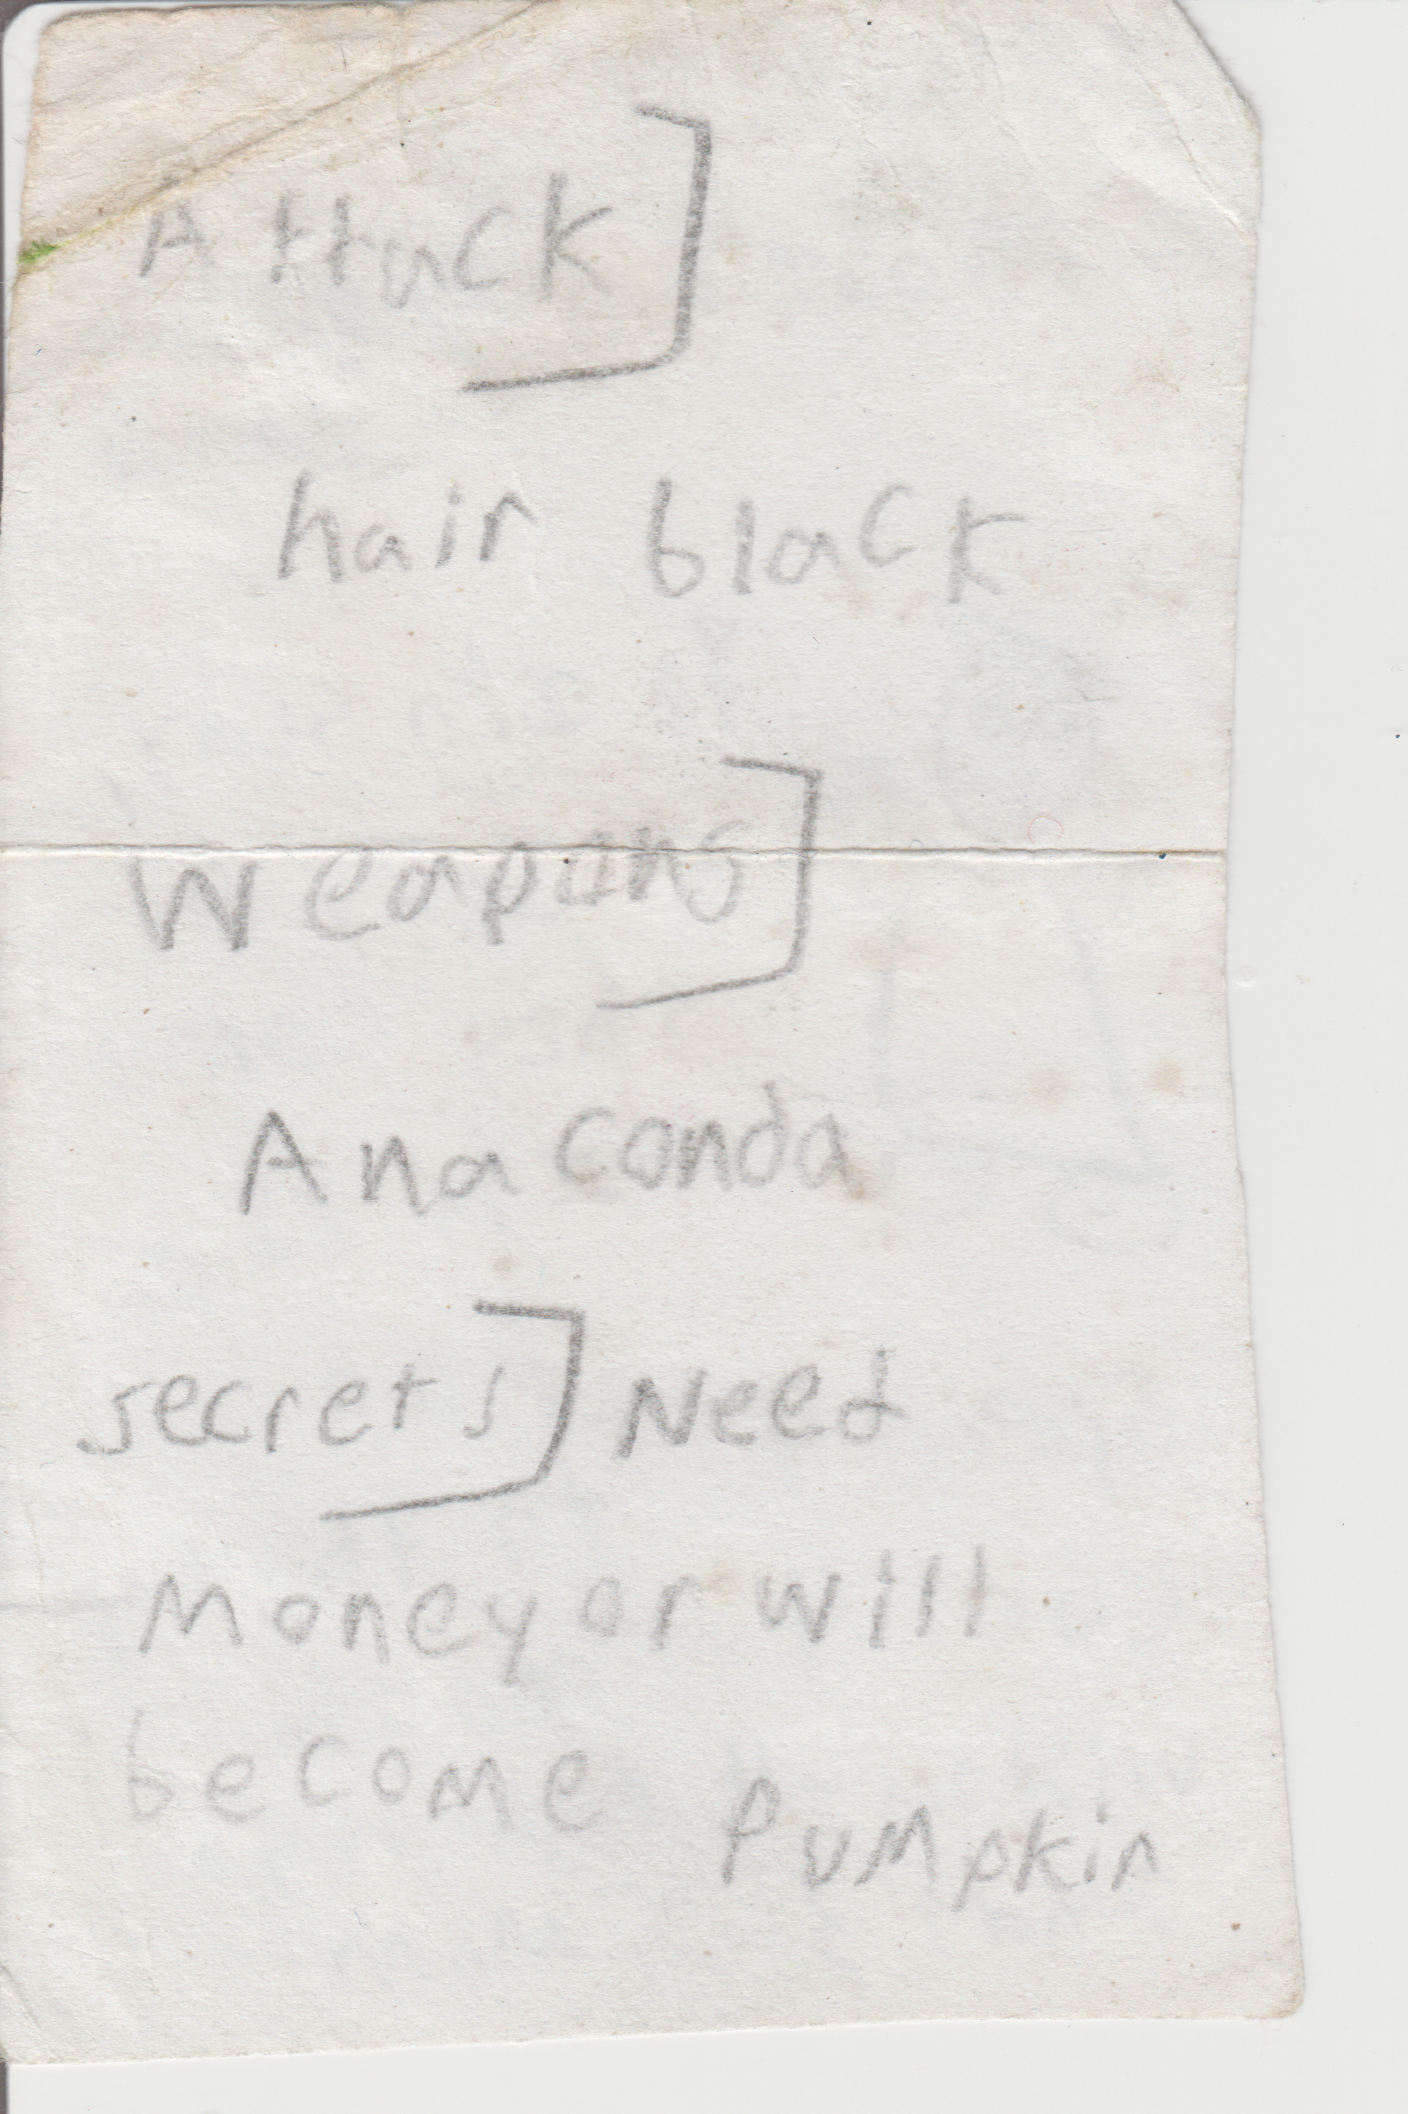 Attack]
hair black
Weapons]
Anaconda
secrets] Need
Money or will
become Pumpkin